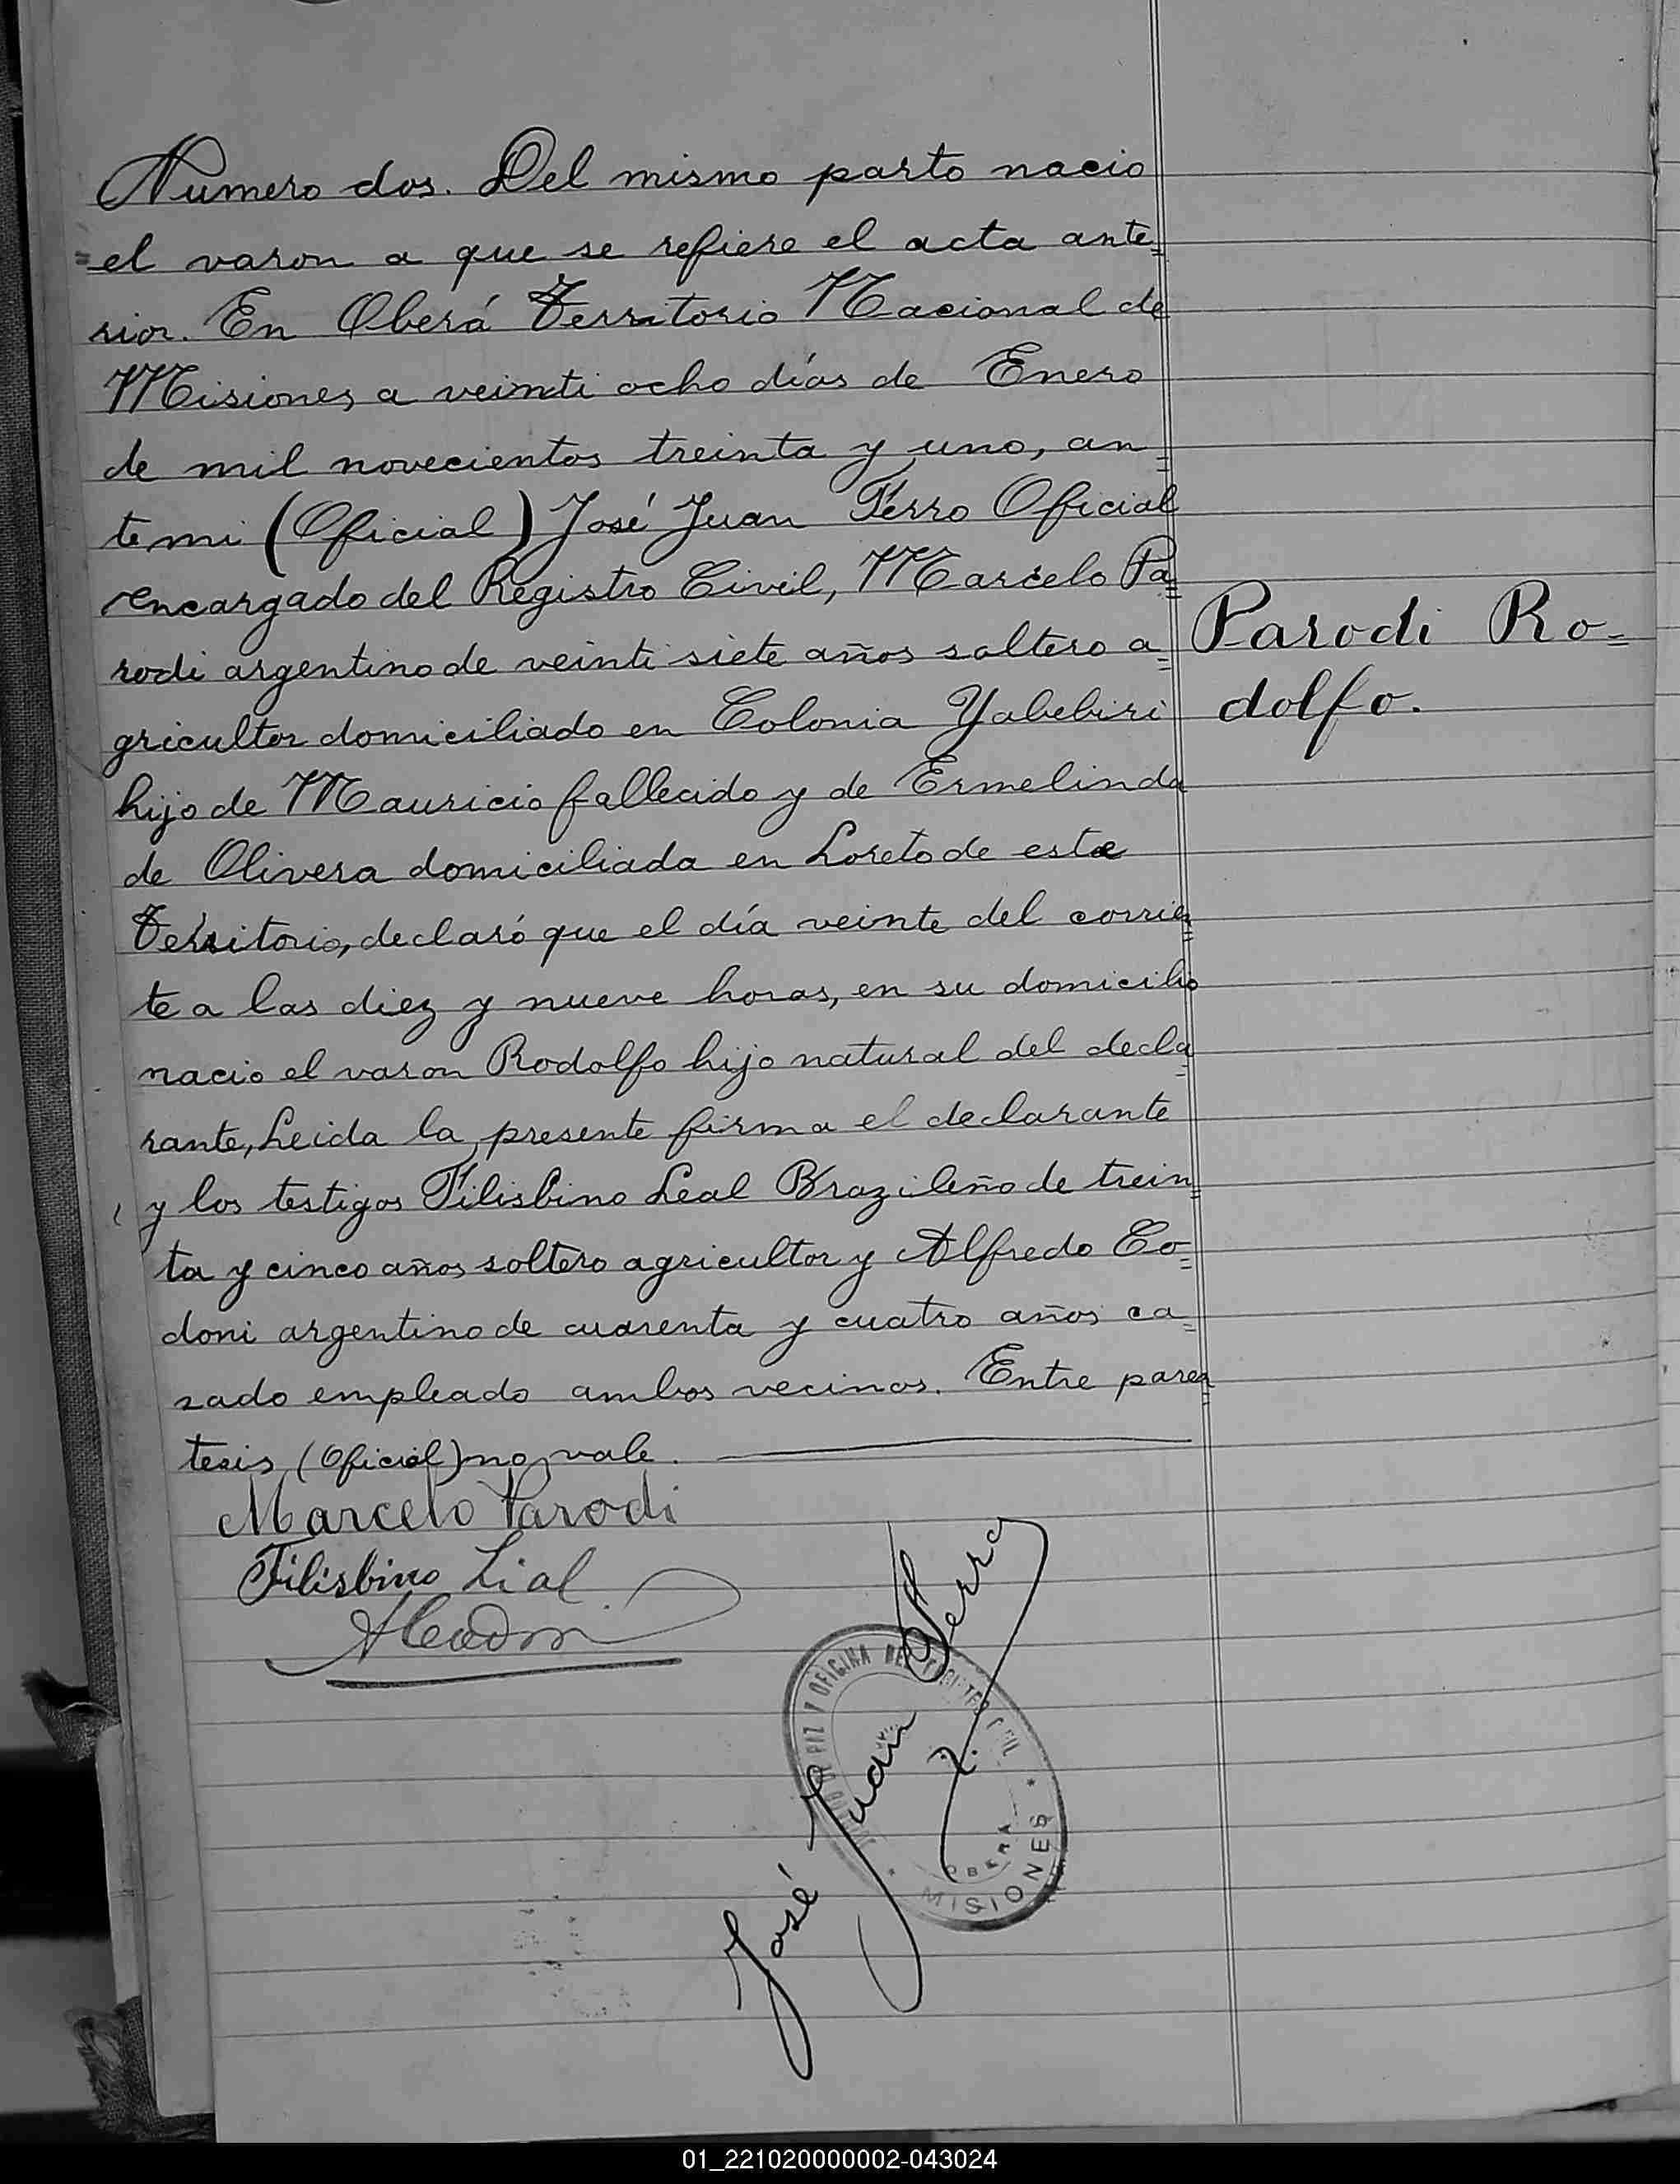 Numero dos. Del mismo parto nacio
el varon a que se refiere el acta ante=
rior. En Oberá Territorio Nacional de
Misiones a veinti ocho días de Enero
de mil novecientos treinta y uno, an=
te mi (Oficial) José Juan Ferro Oficial
encargado del Registro Civil, Marcelo Pa=
rodi argentino de veinti siete años soltero a=
gricultor domiciliado en Colonia Yabebiri
hijo de Mauricio fallecido y de Ermelinda
de Olivera domiciliada en Loreto de este
Territorio, declaró que el día veinte del corrien=
te a las diez y nueve horas, en su domicilio
nacio el varon Rodolfo hijo natural del decla=
rante, Leida la presente firma el declarante
y los testigos Filisbino Leal Brazileño de trein=
ta y cinco años soltero agricultor y Alfredo Co=
doni argentino de cuarenta y cuatro años ca=
sado empleado ambos vecinos. Entre paren=
tesis (Oficial) no vale.
Parodi Ro=
dolfo.
Marcelo Parodi
Filisbino Lial
José Juan Ferro
DE PAZ Y OFICINA DEL REGISTRO CIVIL
OBERA
MISIONES
01_221020000002-043024